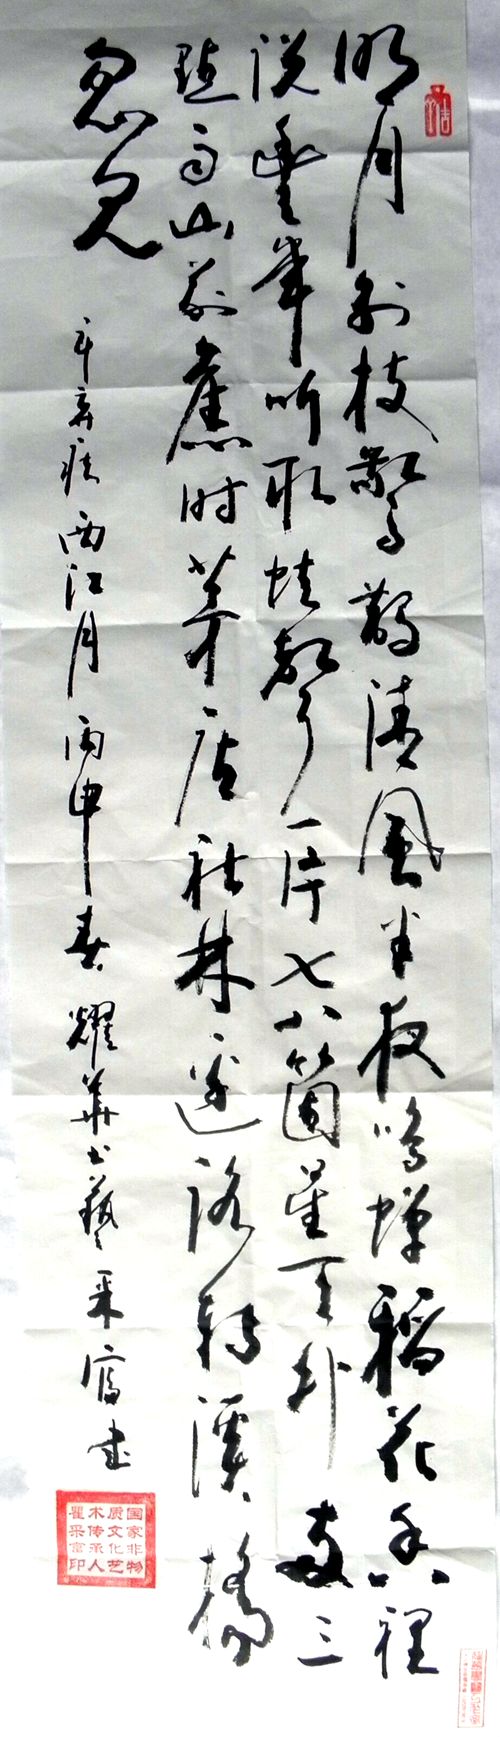 明月别枝惊散清风半夜鸣蝉稻花香里
说丰年听取蛙声一片七八箇星天外两三
点雨山前旧时茅店社林边路转溪桥
忽见
辛弃疾西江月丙申春耀华书艺采富书
国家非物
质文化艺
术传承人
瞿采富印